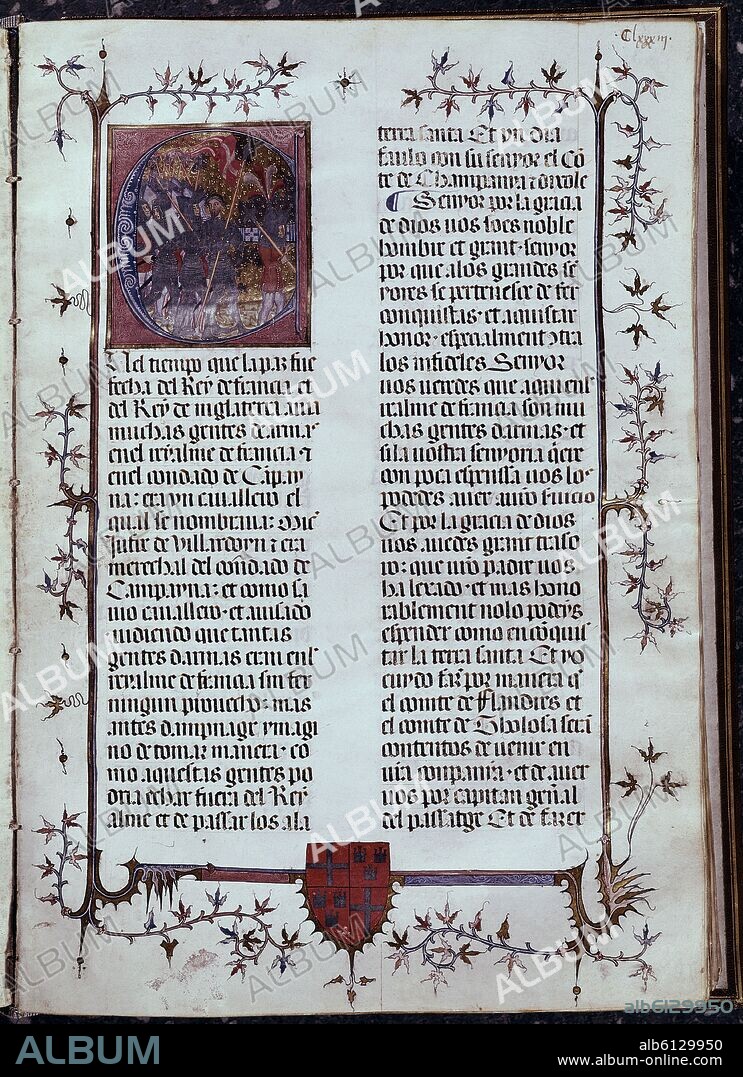 ·Clxxxiii·
Al tiempo que la paz fue
fecha del Rey de francia et
del Rey de inglaterra auia
muchas gentes darmas
enel realme de francia ⁊
enel condado de Cāpay
na: era yn cauallero el
qual se nombraua:
de Villardoyn ⁊ era
merechal del condado de
Campayna: et como sa
uio cauallero · et auisado
uidiendo que tantas
gentes darmas eran enl
realme de francia sin fer
ningun prouecho: mas
antes dampnage ymagi
no de tomar manera · co
mo aquestas gentes po
dria echar fuera del Rey
alme et de passar los ala
terra santa Et vn dia
faulo con su senyor el Cō
te de Champanya ⁊ dixole
¶ Senyor por la gracia
de dios uos soes noble
hombre et grant senyor
por que alos grandes se
yores se pertenesce de fer
conquistas · et aquistar
honor · especialment ɔtra
los infieles Senyor
uos ueedes que aqui enl
realme de francia son mu
chas gentes darmas · et
si la uostra senyoria q̄ere
con poca espenssa uos los
podedes auer a uro seruicio
Et por la gracia de dios
uos auedes grant traso
ro: que uro padre uos
ha lexado · et mas hono
rablement nolo podeys
espender como en cōquis
tar la terra santa Et yo
cuydo far̄ por manera q̄
el comte de Flandres et
el comte de Tholosa serā
contentos de uenir en
ura conpanya · et de auer
uos por capitan gen̄al
del passatge Et de fazer
ALBUM
alb6129950
ALBUM
alb6129950
www.album-online.com